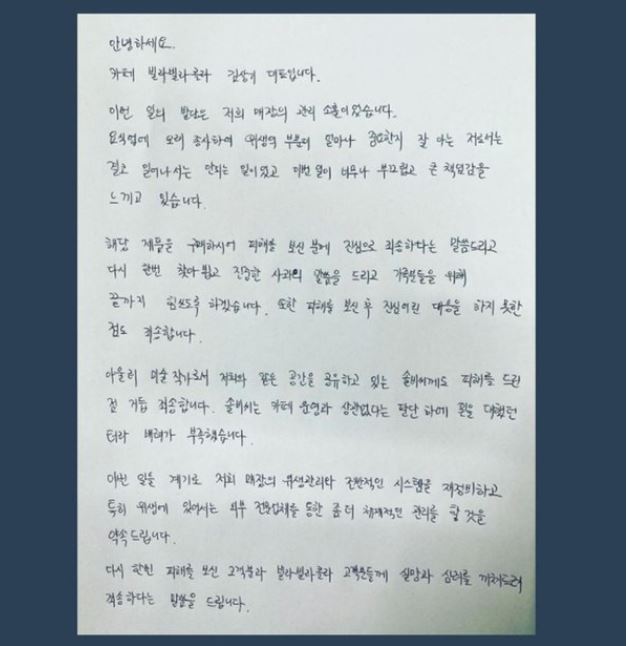 안녕하세요.
카페 빌라빌라콜라 김상기 대표입니다.
이번 일의 발단은 저희 매장의 관리 소홀이었습니다.
요식업에 오래 종사하여 위생의 부분이 얼마나 중요한지 잘 아는 저로서는
결코 일어나서는 안되는 일이었고 이번 일이 너무나 부끄럽고 큰 책임감을
느끼고 있습니다.
해당 제품을 구매하시어 피해를 보신 분께 진심으로 죄송하다는 말씀드리고
다시 한번 찾아뵙고 진중한 사과의 말씀을 드리고 가족분들을 위해
끝까지 힘쓰도록 하겠습니다. 또한 피해를 보신 후 진심어린 대응을 하지 못한
점도 죄송합니다.
아울러 미술작가로서 저희와 같은 공간을 공유하고 있는 솔비씨께도 피해를 드린
점 거듭 죄송합니다. 솔비씨는 카페 운영과 상관없다는 판단 하에 일을 대했던
터라 배려가 부족했습니다.
이번 일을 계기로 저희 매장의 위생관리와 전반적인 시스템을 재정비하고
특히 위생에 있어서는 외부 전문업체를 통한 좀 더 체계적인 관리를 할 것을
약속드립니다.
다시 한번 피해를 보신 고객분과 빌라빌라콜라 고객분들께 실망과 심려를 끼쳐드려
죄송하다는 말씀을 드립니다.